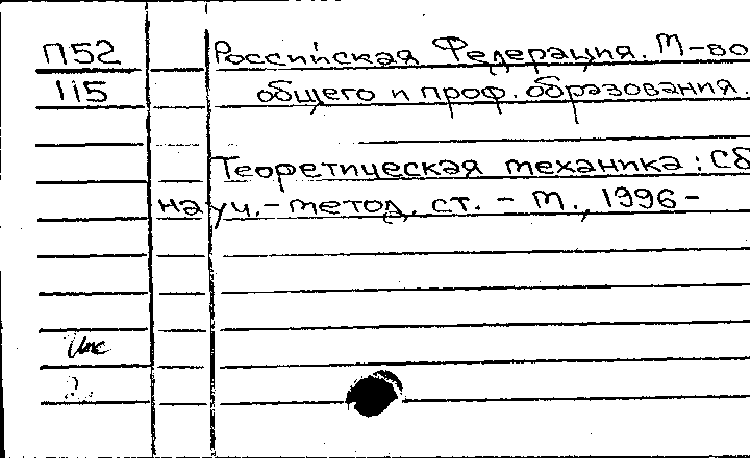 П52 Российская Федерация. М-во
115 общего и проф. образования.
Теоретическая механика : Сб
науч.-метод. ст. - М., 1996-